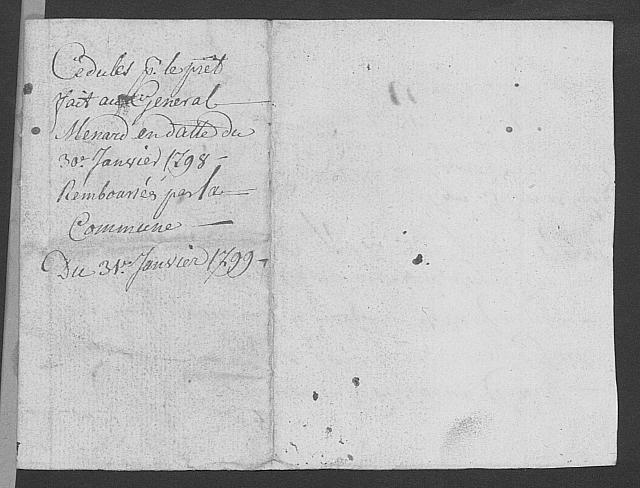 Cédules pr. le prêt
fait au Général
Menard en datte du
30e. Janvier 1798 -
Remboursés par la
Commune
Du 31e. Janvier 1799 -